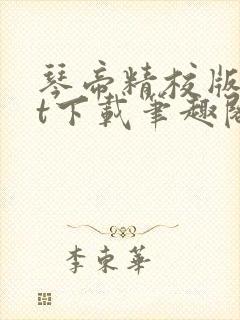 琴帝精校版
t下載筆趣閣
李東華